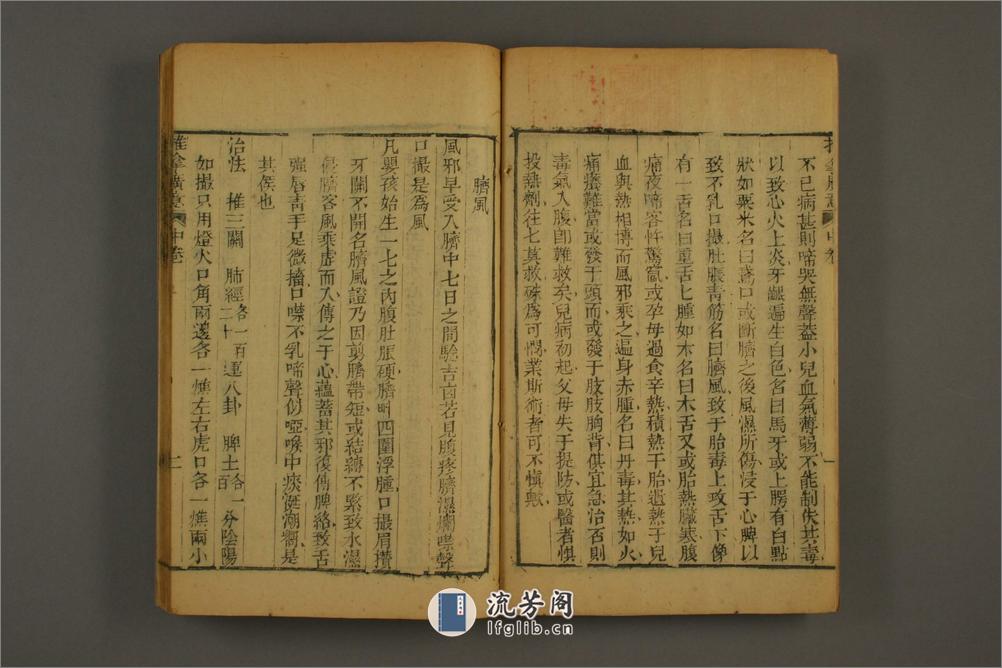 不已病甚則啼哭無聲蓋小兒血氣薄弱不能制伏其毒
以致心火上炎牙齦遍生白色名曰馬牙或上腭有白點
狀如粟米名曰鵞口或斷臍之後風濕所傷浸于心脾以
致不乳口撮肚脹青筋名曰臍風致于胎毒上攻舌下像
有一舌名曰重舌七腫如木名曰木舌又或胎熱臟寒腹
痛夜啼客忤驚窩或孕母過食辛熱積熱于胎遺熱于兒
血與熱相愽而風邪乘之遍身赤腫名曰丹毒其熱如火
痛癢難當或發于頭面或發于肢肢胸背俱宜急治否則
毒氣入腹卽難救矣兒病初起父母失于提防或醫者惧
投熱劑往七莫救殊爲可憫業斯術者可不慎歟
推拿廣意 中卷 一
臍風
風邪早受入臍中七日之間驗吉凶若見腹疼臍濕爛噤聲
口撮是爲風
凡嬰孩始生一七之內腹肚脹碩臍畔四圍浮腫口撮眉攢
牙關不開名臍風證乃因剪臍帶短或結縛不緊致水濕
侵臍客風乘虛而入傳之于心蘊蓄其邪復傳脾絡致舌
強唇青手足微搐口噤不乳啼聲似啞喉中痰涎潮響是
其侯也
治法 推三關 肺經各一百二十 運八卦 脾土各一百 分陰陽
如撮只用燈火口角兩邊各一燋左右虎口各一燋兩小
推拿廣意 中卷 二
流芳阁
lfglib.cn